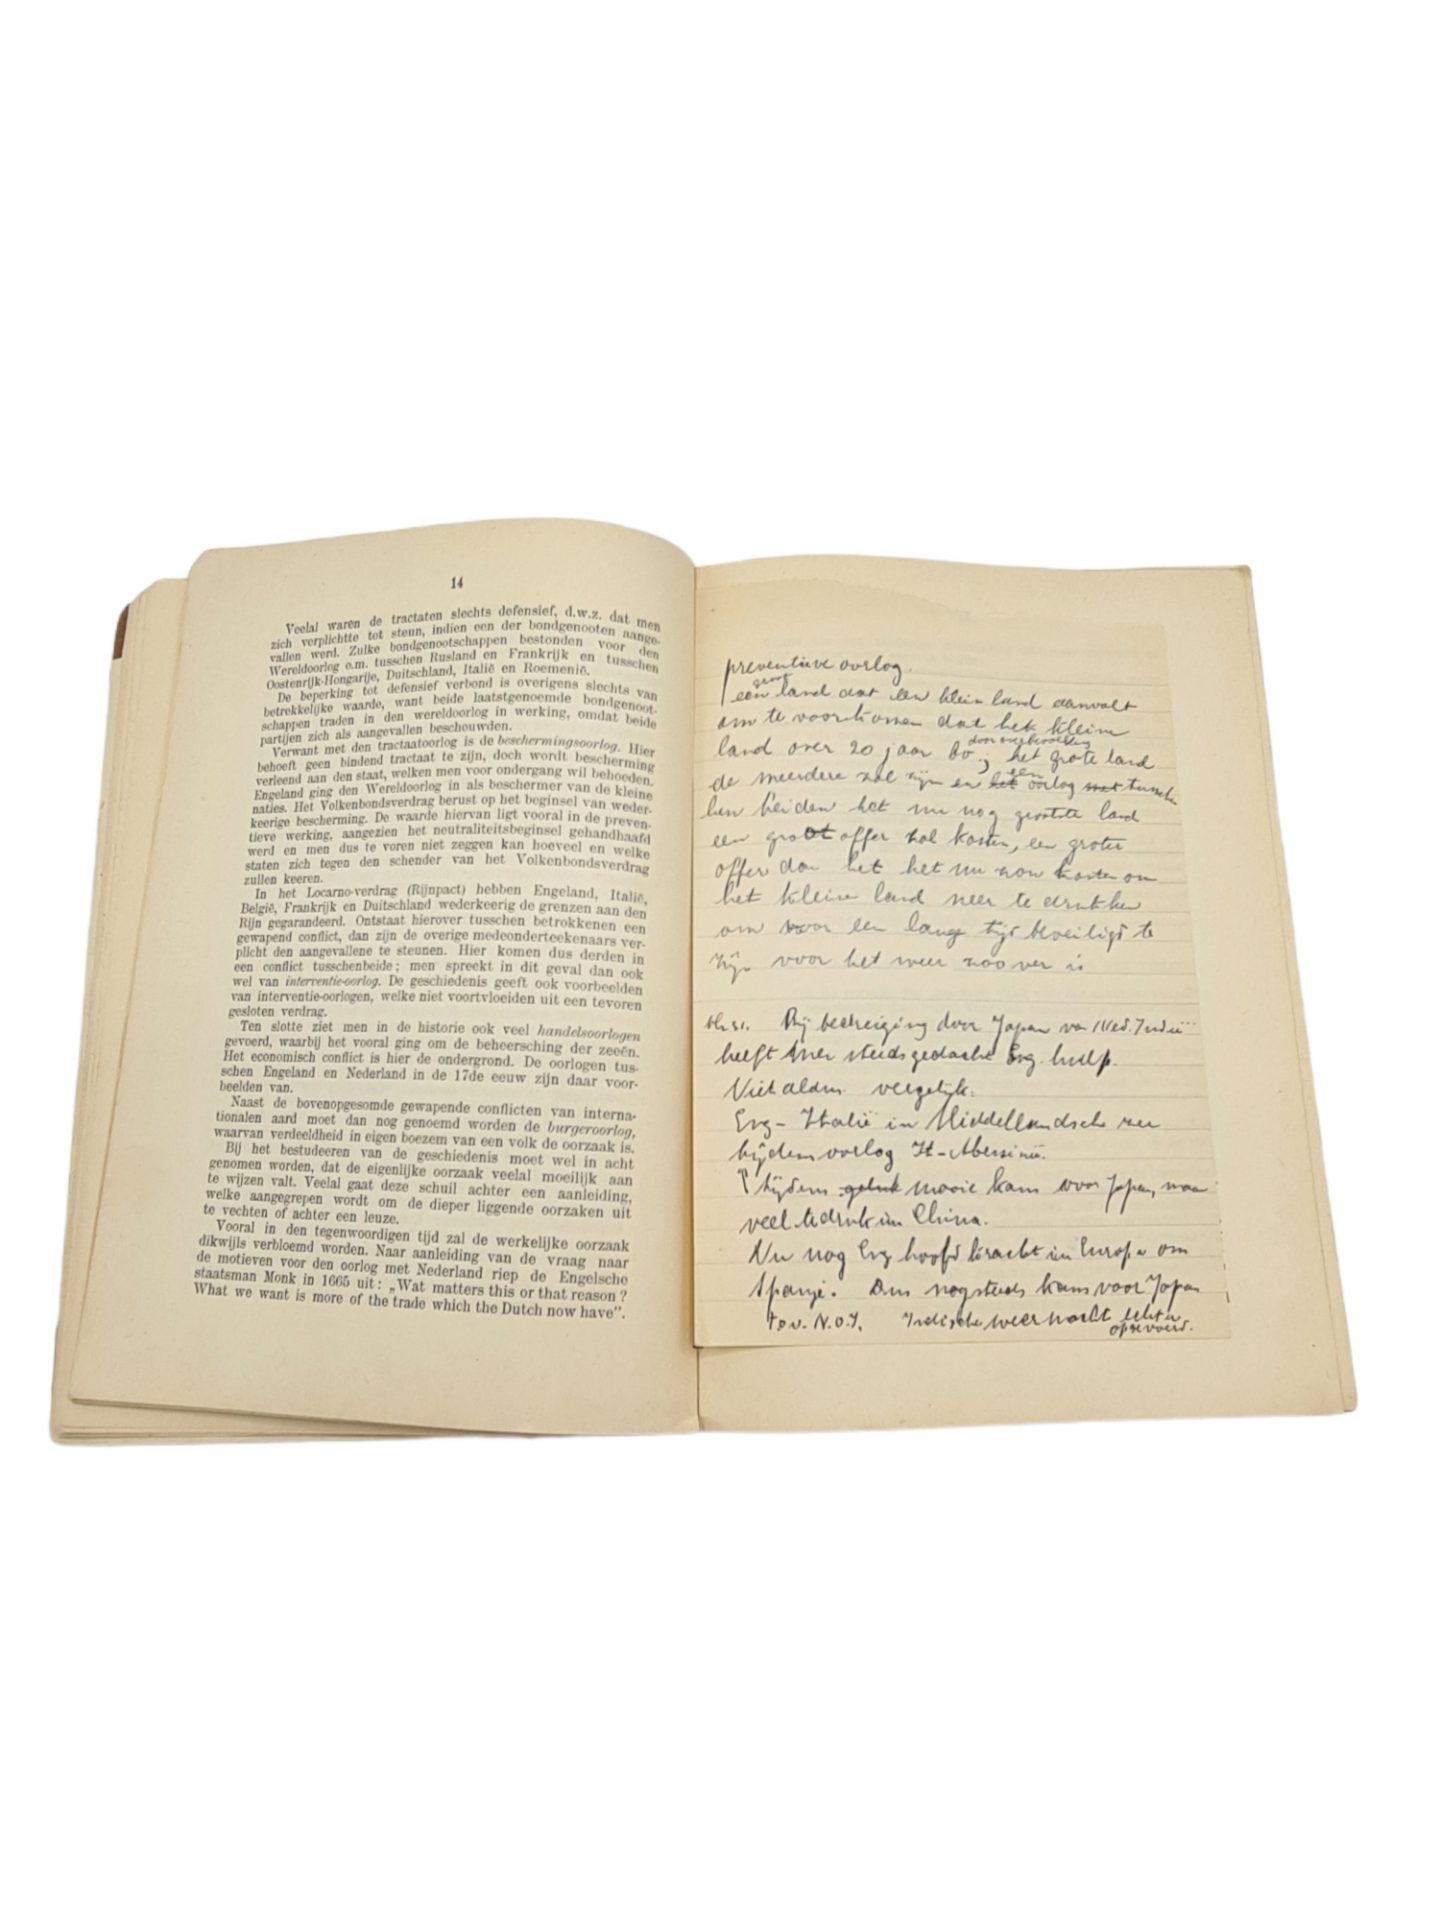 14
Veelal waren de tractaten slechts defensief, d.w.z. dat men
zich verplichtte tot steun, indien een der bondgenooten aange-
vallen werd. Zulke bondgenootschappen bestonden voor den
Wereldoorlog o.m. tusschen Rusland en Frankrijk en tusschen
Oostenrijk-Hongarije, Duitschland, Italië en Roemenië.
De beperking tot defensief verbond is overigens slechts van
betrekkelijke waarde, want beide laatstgenoemde bondgenoot-
schappen traden in den wereldoorlog in werking, omdat beide
partijen zich als aangevallen beschouwden.
Verwant met den tractaatoorlog is de beschermingsoorlog. Hier
behoeft geen bindend tractaat te zijn, doch wordt bescherming
verleend aan den staat, welken men voor ondergang wil behoeden.
Engeland ging den Wereldoorlog in als beschermer van de kleine
naties. Het Volkenbondsverdrag berust op het beginsel van weder-
keerige bescherming. De waarde hiervan ligt vooral in de preven-
tieve werking, aangezien het neutraliteitsbeginsel gehandhaafd
werd en men dus te voren niet zeggen kan hoeveel en welke
staten zich tegen den schender van het Volkenbondsverdrag
zullen keeren.
In het Locarno-verdrag (Rijnpact) hebben Engeland, Italië,
België, Frankrijk en Duitschland wederkeerig de grenzen aan den
Rijn gegarandeerd. Ontstaat hierover tusschen betrokkenen een
gewapend conflict, dan zijn de overige medeonderteekenaars ver-
plicht den aangevallene te steunen. Hier komen dus derden in
een conflict tusschenbeide; men spreekt in dit geval dan ook
wel van interventie-oorlog. De geschiedenis geeft ook voorbeelden
van interventie-oorlogen, welke niet voortvloeiden uit een tevoren
gesloten verdrag.
Ten slotte ziet men in de historie ook veel handelsoorlogen
gevoerd, waarbij het vooral ging om de beheersching der zeeën.
Het economisch conflict is hier de ondergrond. De oorlogen tus-
schen Engeland en Nederland in de 17de eeuw zijn daar voor-
beelden van.
Naast de bovenopgesomde gewapende conflicten van interna-
tionalen aard moet dan nog genoemd worden de burgeroorlog,
waarvan verdeeldheid in eigen boezem van een volk de oorzaak is.
Bij het bestudeeren van de geschiedenis moet wel in acht
genomen worden, dat de eigenlijke oorzaak veelal moeilijk aan
te wijzen valt. Veelal gaat deze schuil achter een aanleiding,
welke aangegrepen wordt om de dieper liggende oorzaken uit
te vechten of achter een leuze.
Vooral in den tegenwoordigen tijd zal de werkelijke oorzaak
dikwijls verbloemd worden. Naar aanleiding van de vraag naar
de motieven voor den oorlog met Nederland riep de Engelsche
staatsman Monk in 1665 uit: „Wat matters this or that reason?
What we want is more of the trade which the Dutch now have”.
preventieve oorlog.
groot
een land dat een klein land aanvalt
om te voorkomen dat het kleine
door overbevolking
land over 20 jaar het grote land
de meerdere zal zijn en een oorlog tusschen
hen beiden het nu nog grootste land
een groot offer zal kosten, een groter
offer dan het het nu zou kosten om
het kleine land neer te drukken
om voor een lange tijd beveiligd te
zijn voor het weer zoo ver is
blz 31. Bij bedreiging door Japan van Ned. Indië
heeft men steeds gedacht Eng. hulp.
Niet aldus
Eng - Italië in Middellandsche zee
tijdens oorlog It - Abessinië.
tijdens mooie kans voor Japan, maar
veel te druk in China.
Nu nog Eng hoofd kracht in Europa om
Spanje. Dus nog steeds kans voor Japan
t.o.v. N.O.I. Indische weermacht echter
opgevoerd.